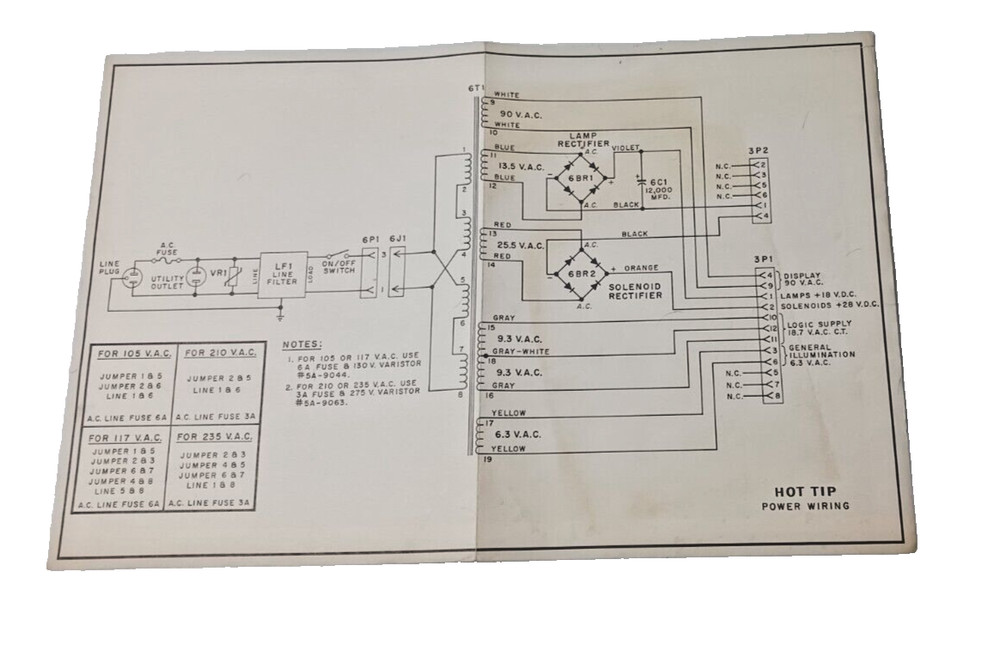 6T1
WHITE
9
90 V.A.C.
WHITE
10
LAMP
RECTIFIER
A.C.
VIOLET
BLUE
11
13.5 V.A.C.
BLUE
12
6BR1
-
+
A.C.
+
6C1
12,000
MFD.
BLACK
3P2
N.C. 2
N.C. 3
N.C. 5
N.C. 6
1
4
1
2
3
4
5
6
7
8
RED
13
25.5 V.A.C.
RED
14
A.C.
BLACK
6BR2
-
+
ORANGE
A.C.
SOLENOID
RECTIFIER
3P1
4
9
DISPLAY
90 V.A.C.
1 LAMPS +18 V.D.C.
2 SOLENOIDS +28 V.D.C.
10
12
11
LOGIC SUPPLY
18.7 V.A.C. C.T.
3
6
GENERAL
ILLUMINATION
6.3 V.A.C.
N.C. 5
N.C. 7
N.C. 8
GRAY
15
9.3 V.A.C.
GRAY-WHITE
18
9.3 V.A.C.
GRAY
16
YELLOW
17
6.3 V.A.C.
YELLOW
19
LINE
PLUG
A.C.
FUSE
UTILITY
OUTLET
VR1
LINE
LF1
LINE
FILTER
LOAD
ON/OFF
SWITCH
6P1 6J1
3
1
NOTES:
1. FOR 105 OR 117 V.A.C. USE
6A FUSE & 130 V. VARISTOR
#5A-9044.
2. FOR 210 OR 235 V.A.C. USE
3A FUSE & 275 V. VARISTOR
#5A-9063.
FOR 105 V.A.C.
JUMPER 1 & 5
JUMPER 2 & 6
LINE 1 & 6
A.C. LINE FUSE 6A
FOR 210 V.A.C.
JUMPER 2 & 5
LINE 1 & 6
A.C. LINE FUSE 3A
FOR 117 V.A.C.
JUMPER 1 & 5
JUMPER 2 & 3
JUMPER 6 & 7
JUMPER 4 & 8
LINE 5 & 8
A.C. LINE FUSE 6A
FOR 235 V.A.C.
JUMPER 2 & 3
JUMPER 4 & 5
JUMPER 6 & 7
LINE 1 & 8
A.C. LINE FUSE 3A
HOT TIP
POWER WIRING